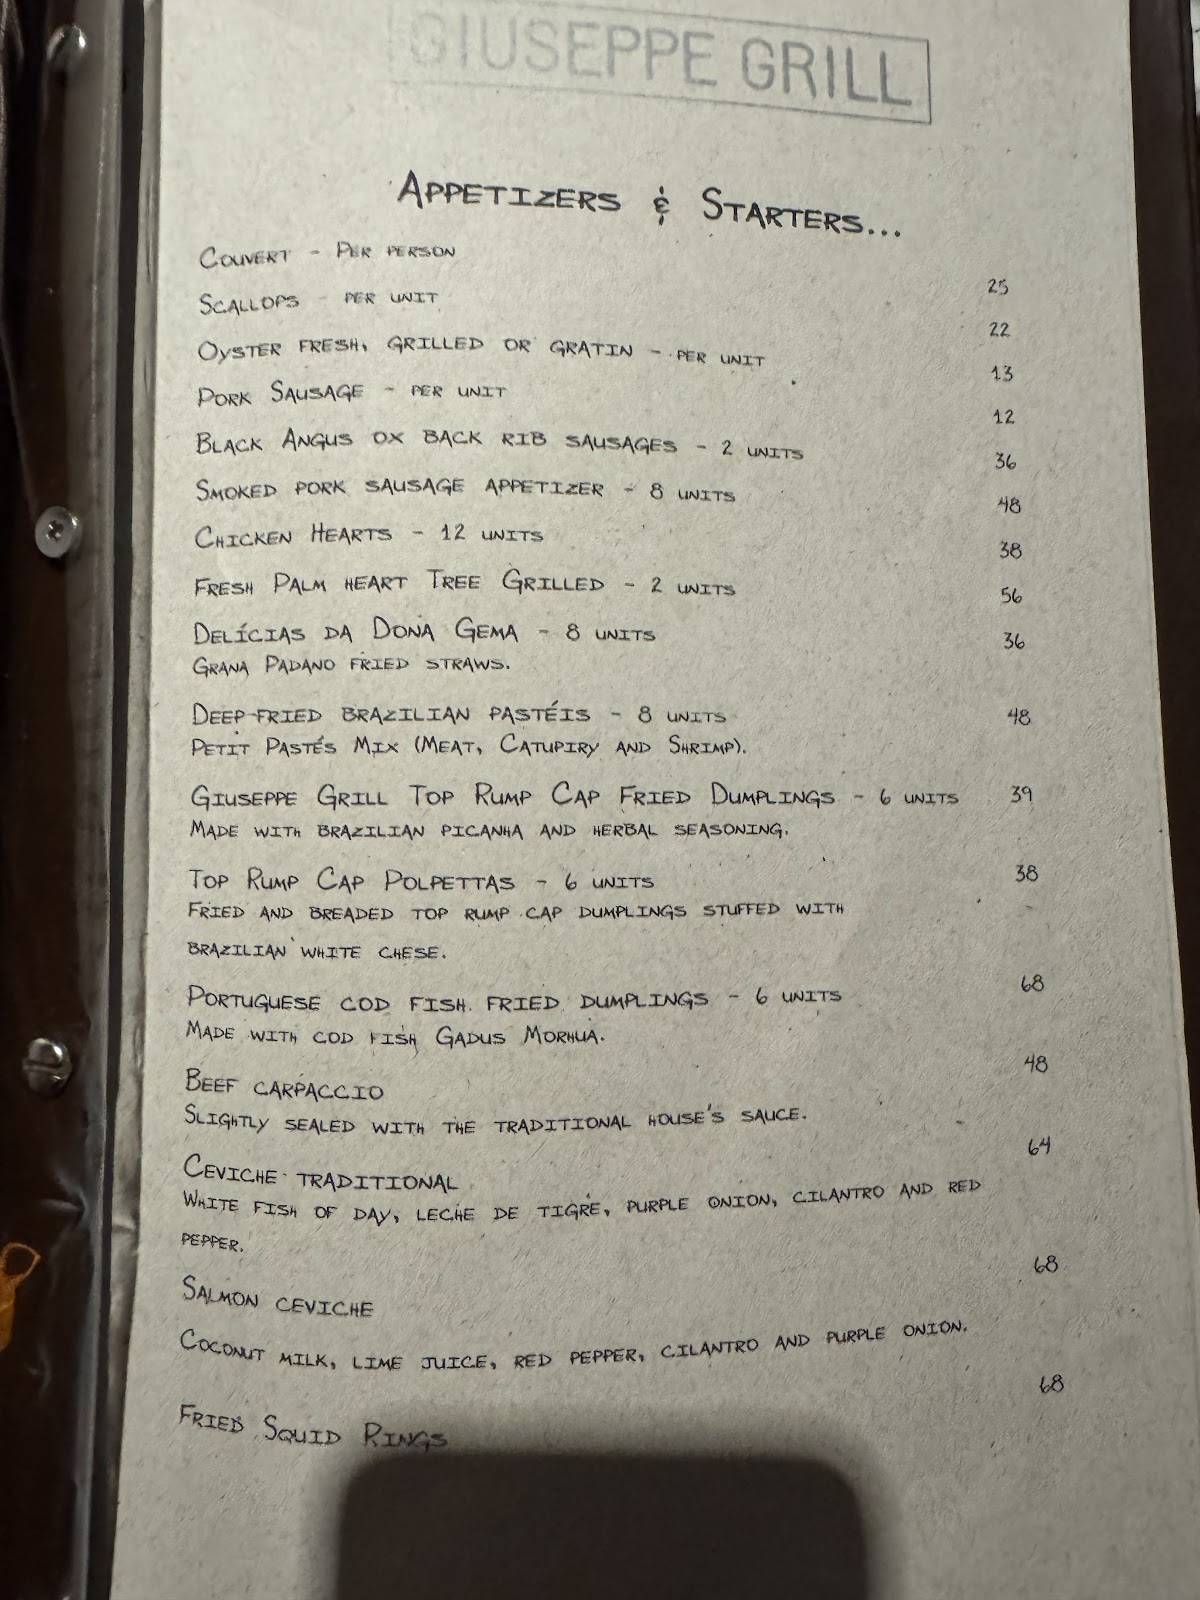 GIUSEPPE GRILL
APPETIZERS & STARTERS...
COUVERT - PER PERSON 25
SCALLOPS - PER UNIT 22
OYSTER FRESH, GRILLED OR GRATIN - PER UNIT 13
PORK SAUSAGE - PER UNIT 12
BLACK ANGUS OX BACK RIB SAUSAGES - 2 UNITS 36
SMOKED PORK SAUSAGE APPETIZER - 8 UNITS 48
CHICKEN HEARTS - 12 UNITS 38
FRESH PALM HEART TREE GRILLED - 2 UNITS 56
DELÍCIAS DA DONA GEMA - 8 UNITS 36
GRANA PADANO FRIED STRAWS.
DEEP-FRIED BRAZILIAN PASTÉIS - 8 UNITS 48
PETIT PASTÉS MIX (MEAT, CATUPIRY AND SHRIMP).
GIUSEPPE GRILL TOP RUMP CAP FRIED DUMPLINGS - 6 UNITS 39
MADE WITH BRAZILIAN PICANHA AND HERBAL SEASONING.
TOP RUMP CAP POLPETTAS - 6 UNITS 38
FRIED AND BREADED TOP RUMP CAP DUMPLINGS STUFFED WITH
BRAZILIAN WHITE CHESE.
PORTUGUESE COD FISH FRIED DUMPLINGS - 6 UNITS 68
MADE WITH COD FISH GADUS MORHUA.
BEEF CARPACCIO 48
SLIGHTLY SEALED WITH THE TRADITIONAL HOUSE'S SAUCE.
CEVICHE TRADITIONAL 64
WHITE FISH OF DAY, LECHE DE TIGRE, PURPLE ONION, CILANTRO AND RED
PEPPER.
SALMON CEVICHE 68
COCONUT MILK, LIME JUICE, RED PEPPER, CILANTRO AND PURPLE ONION.
FRIED SQUID RINGS 68